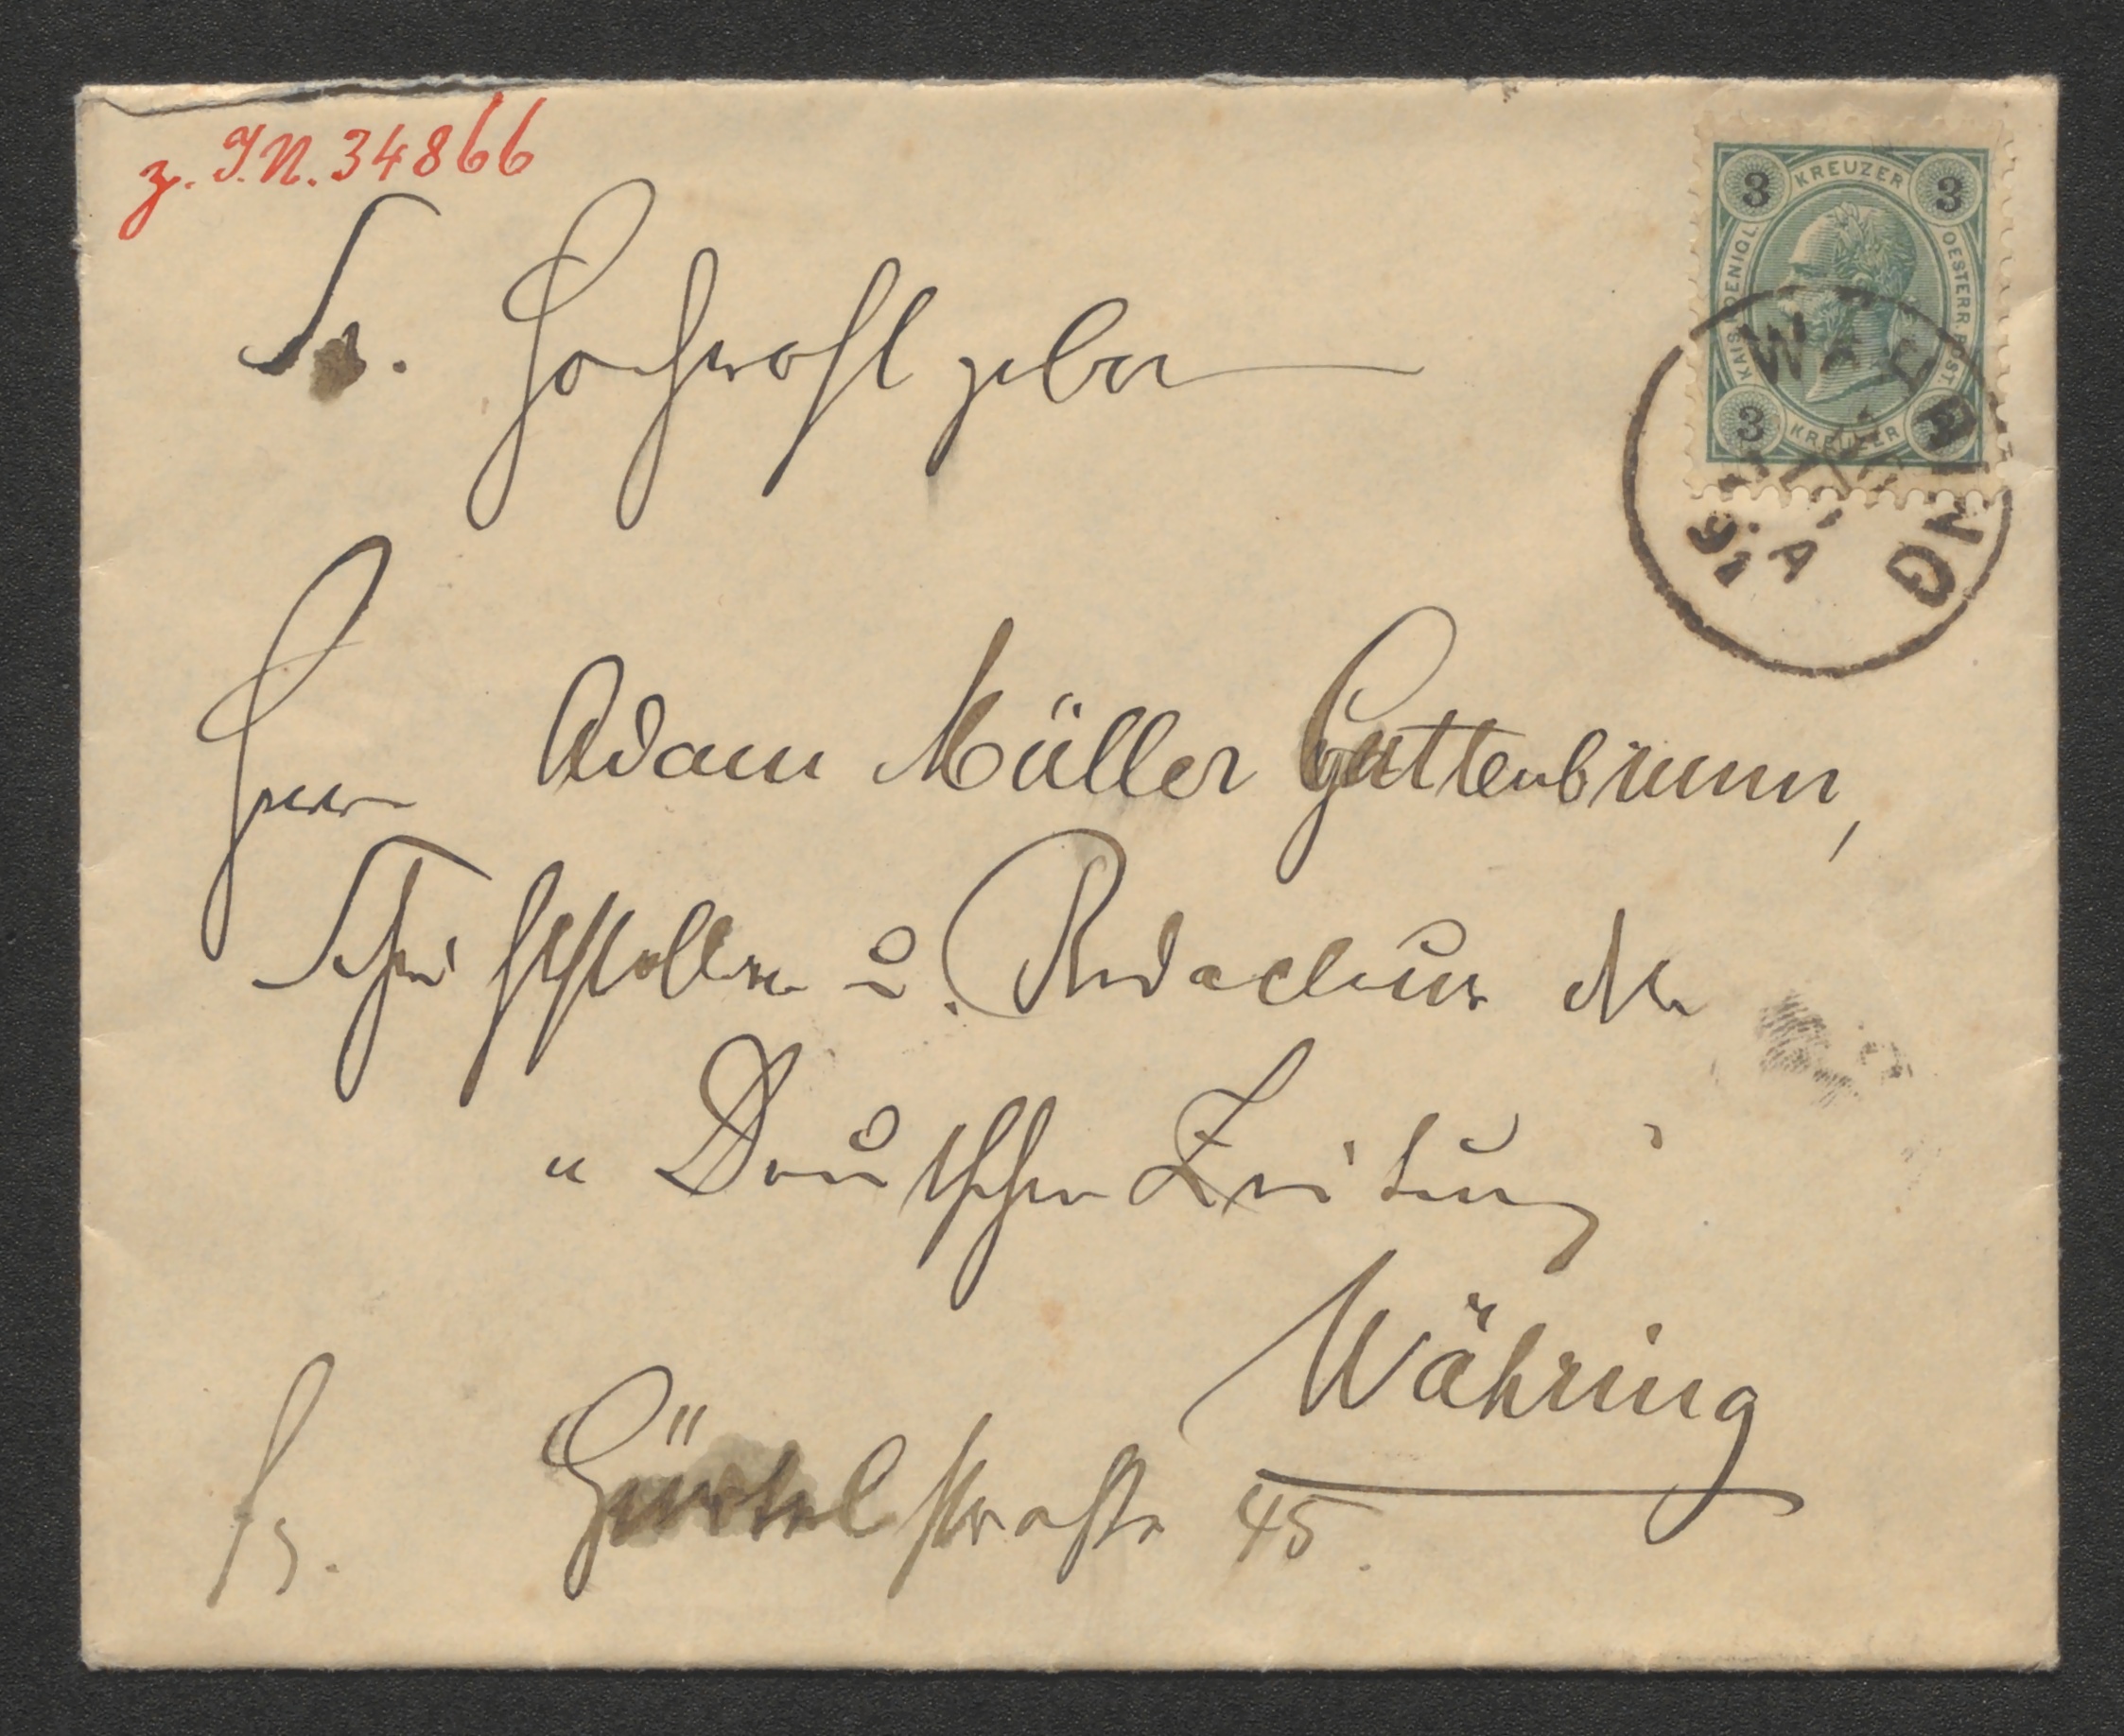 z. I.N. 34866
Sr. Hochwohlgebor
Herrn Adam Müller Guttenbrunn,
Schriftsteller u. Redacteur der
„Deutschen Zeitung"
Währing
Gürtelstraße 45.
3 KREUZER 3
KAIS. KOENIGL. OESTERR. POST.
3 KREUZER 3
WAEHRING
91
A